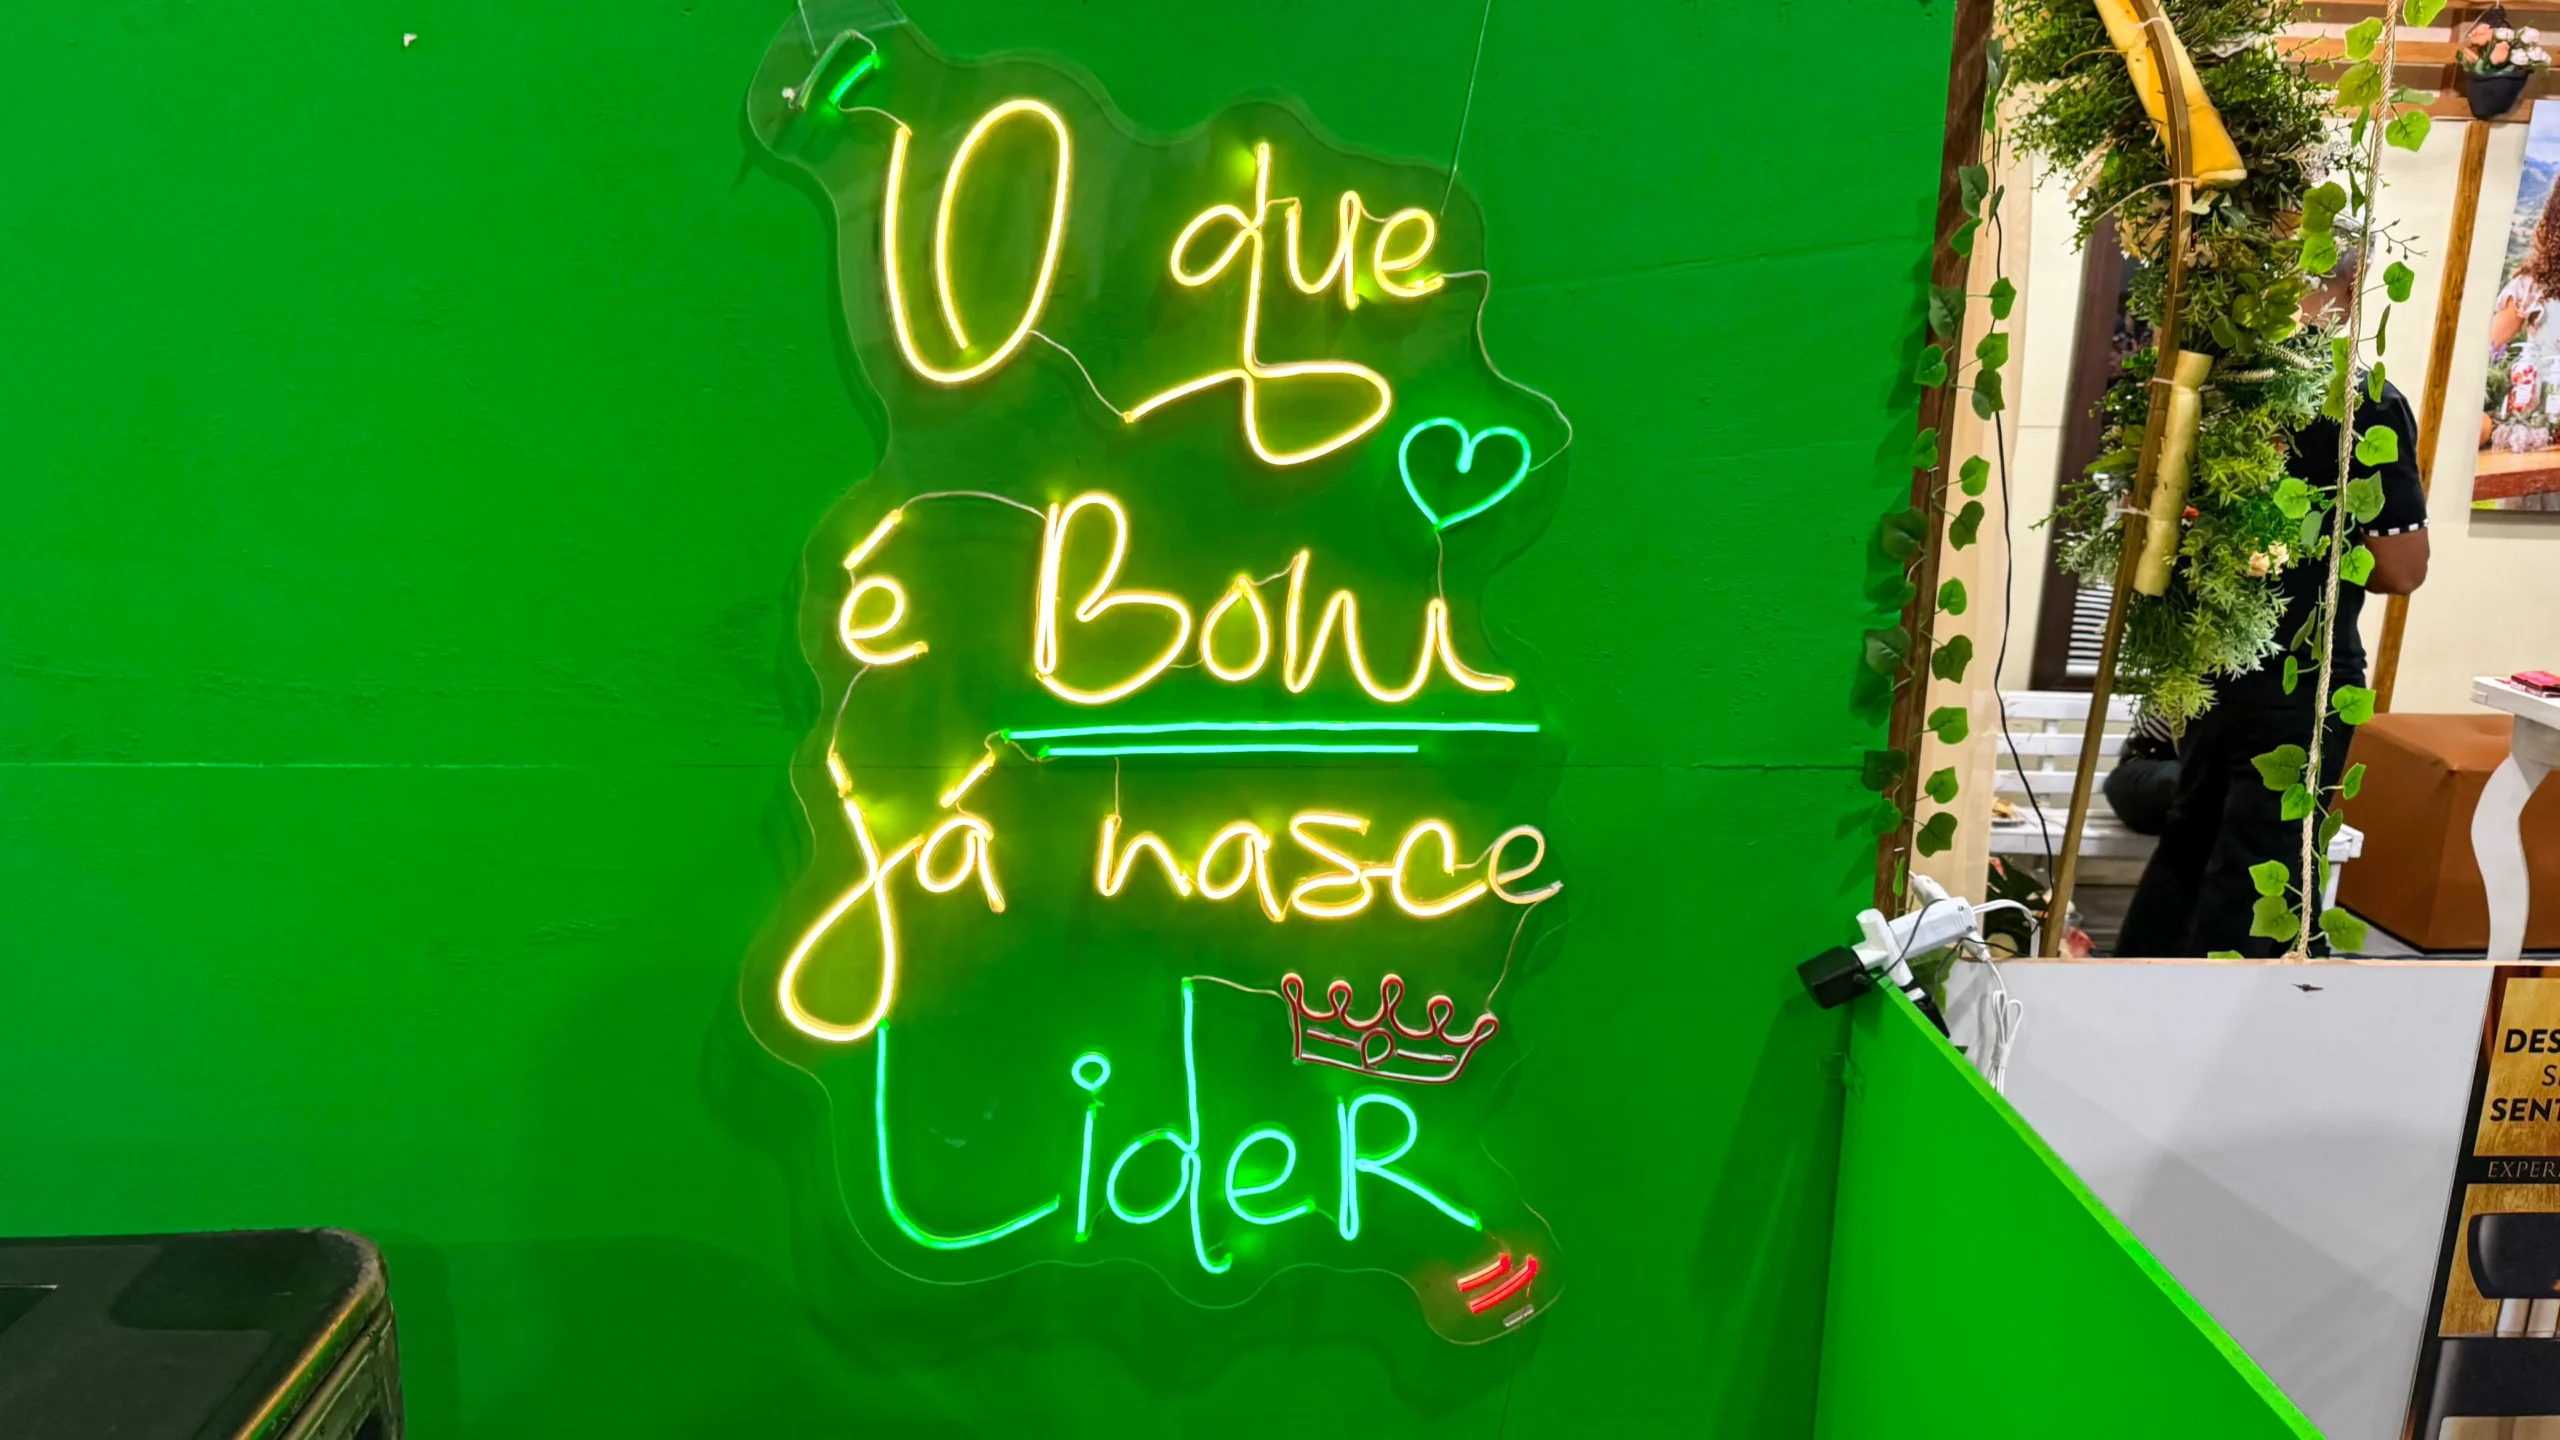 O que
é Bom
já nasce
LideR
DES
SENT
EXPER